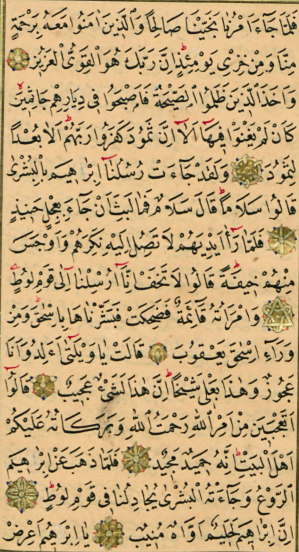 فَلَمَّا جَاءَ اَمْرُنَا نَجَّيْنَا صَالِحًا وَالَّذِينَ اٰمَنُوا مَعَهُ بِرَحْمَةٍ
مِنَّا وَمِنْ خِزْىِ يَوْمِئِذٍ اِنَّ رَبَّكَ هُوَ الْقَوِىُّ الْعَزِيزُ
وَاَخَذَ الَّذِينَ ظَلَمُوا الصَّيْحَةُ فَاَصْبَحُوا فِى دِيَارِهِمْ جَاثِمِينَ
كَاَنْ لَمْ يَغْنَوْا فِيهَا اَلَا اِنَّ ثَمُودَ كَفَرُوا رَبَّهُمْ اَلَا بُعْدًا
لِثَمُودَ وَلَقَدْ جَاءَتْ رُسُلُنَا اِبْرٰهِيمَ بِالْبُشْرٰى
قَالُوا سَلَامًا قَالَ سَلَامٌ فَمَا لَبِثَ اَنْ جَاءَ بِعِجْلٍ حَنِيذٍ
فَلَمَّا رَاٰ اَيْدِيَهُمْ لَا تَصِلُ اِلَيْهِ نَكِرَهُمْ وَاَوْجَسَ
مِنْهُمْ خِيفَةً قَالُوا لَا تَخَفْ اِنَّا اُرْسِلْنَا اِلٰى قَوْمِ لُوطٍ
وَامْرَاَتُهُ قَائِمَةٌ فَضَحِكَتْ فَبَشَّرْنَاهَا بِاِسْحٰقَ وَمِنْ
وَرَاءِ اِسْحٰقَ يَعْقُوبَ قَالَتْ يَا وَيْلَتٰى ءَاَلِدُ وَاَنَا
عَجُوزٌ وَهٰذَا بَعْلِى شَيْخًا اِنَّ هٰذَا لَشَىْءٌ عَجِيبٌ قَالُوا
اَتَعْجَبِينَ مِنْ اَمْرِ اللّٰهِ رَحْمَتُ اللّٰهِ وَبَرَكَاتُهُ عَلَيْكُمْ
اَهْلَ الْبَيْتِ اِنَّهُ حَمِيدٌ مَجِيدٌ فَلَمَّا ذَهَبَ عَنْ اِبْرٰهِيمَ
الرَّوْعُ وَجَاءَتْهُ الْبُشْرٰى يُجَادِلُنَا فِى قَوْمِ لُوطٍ
اِنَّ اِبْرٰهِيمَ لَحَلِيمٌ اَوَّاهٌ مُنِيبٌ يَا اِبْرٰهِيمُ اَعْرِضْ